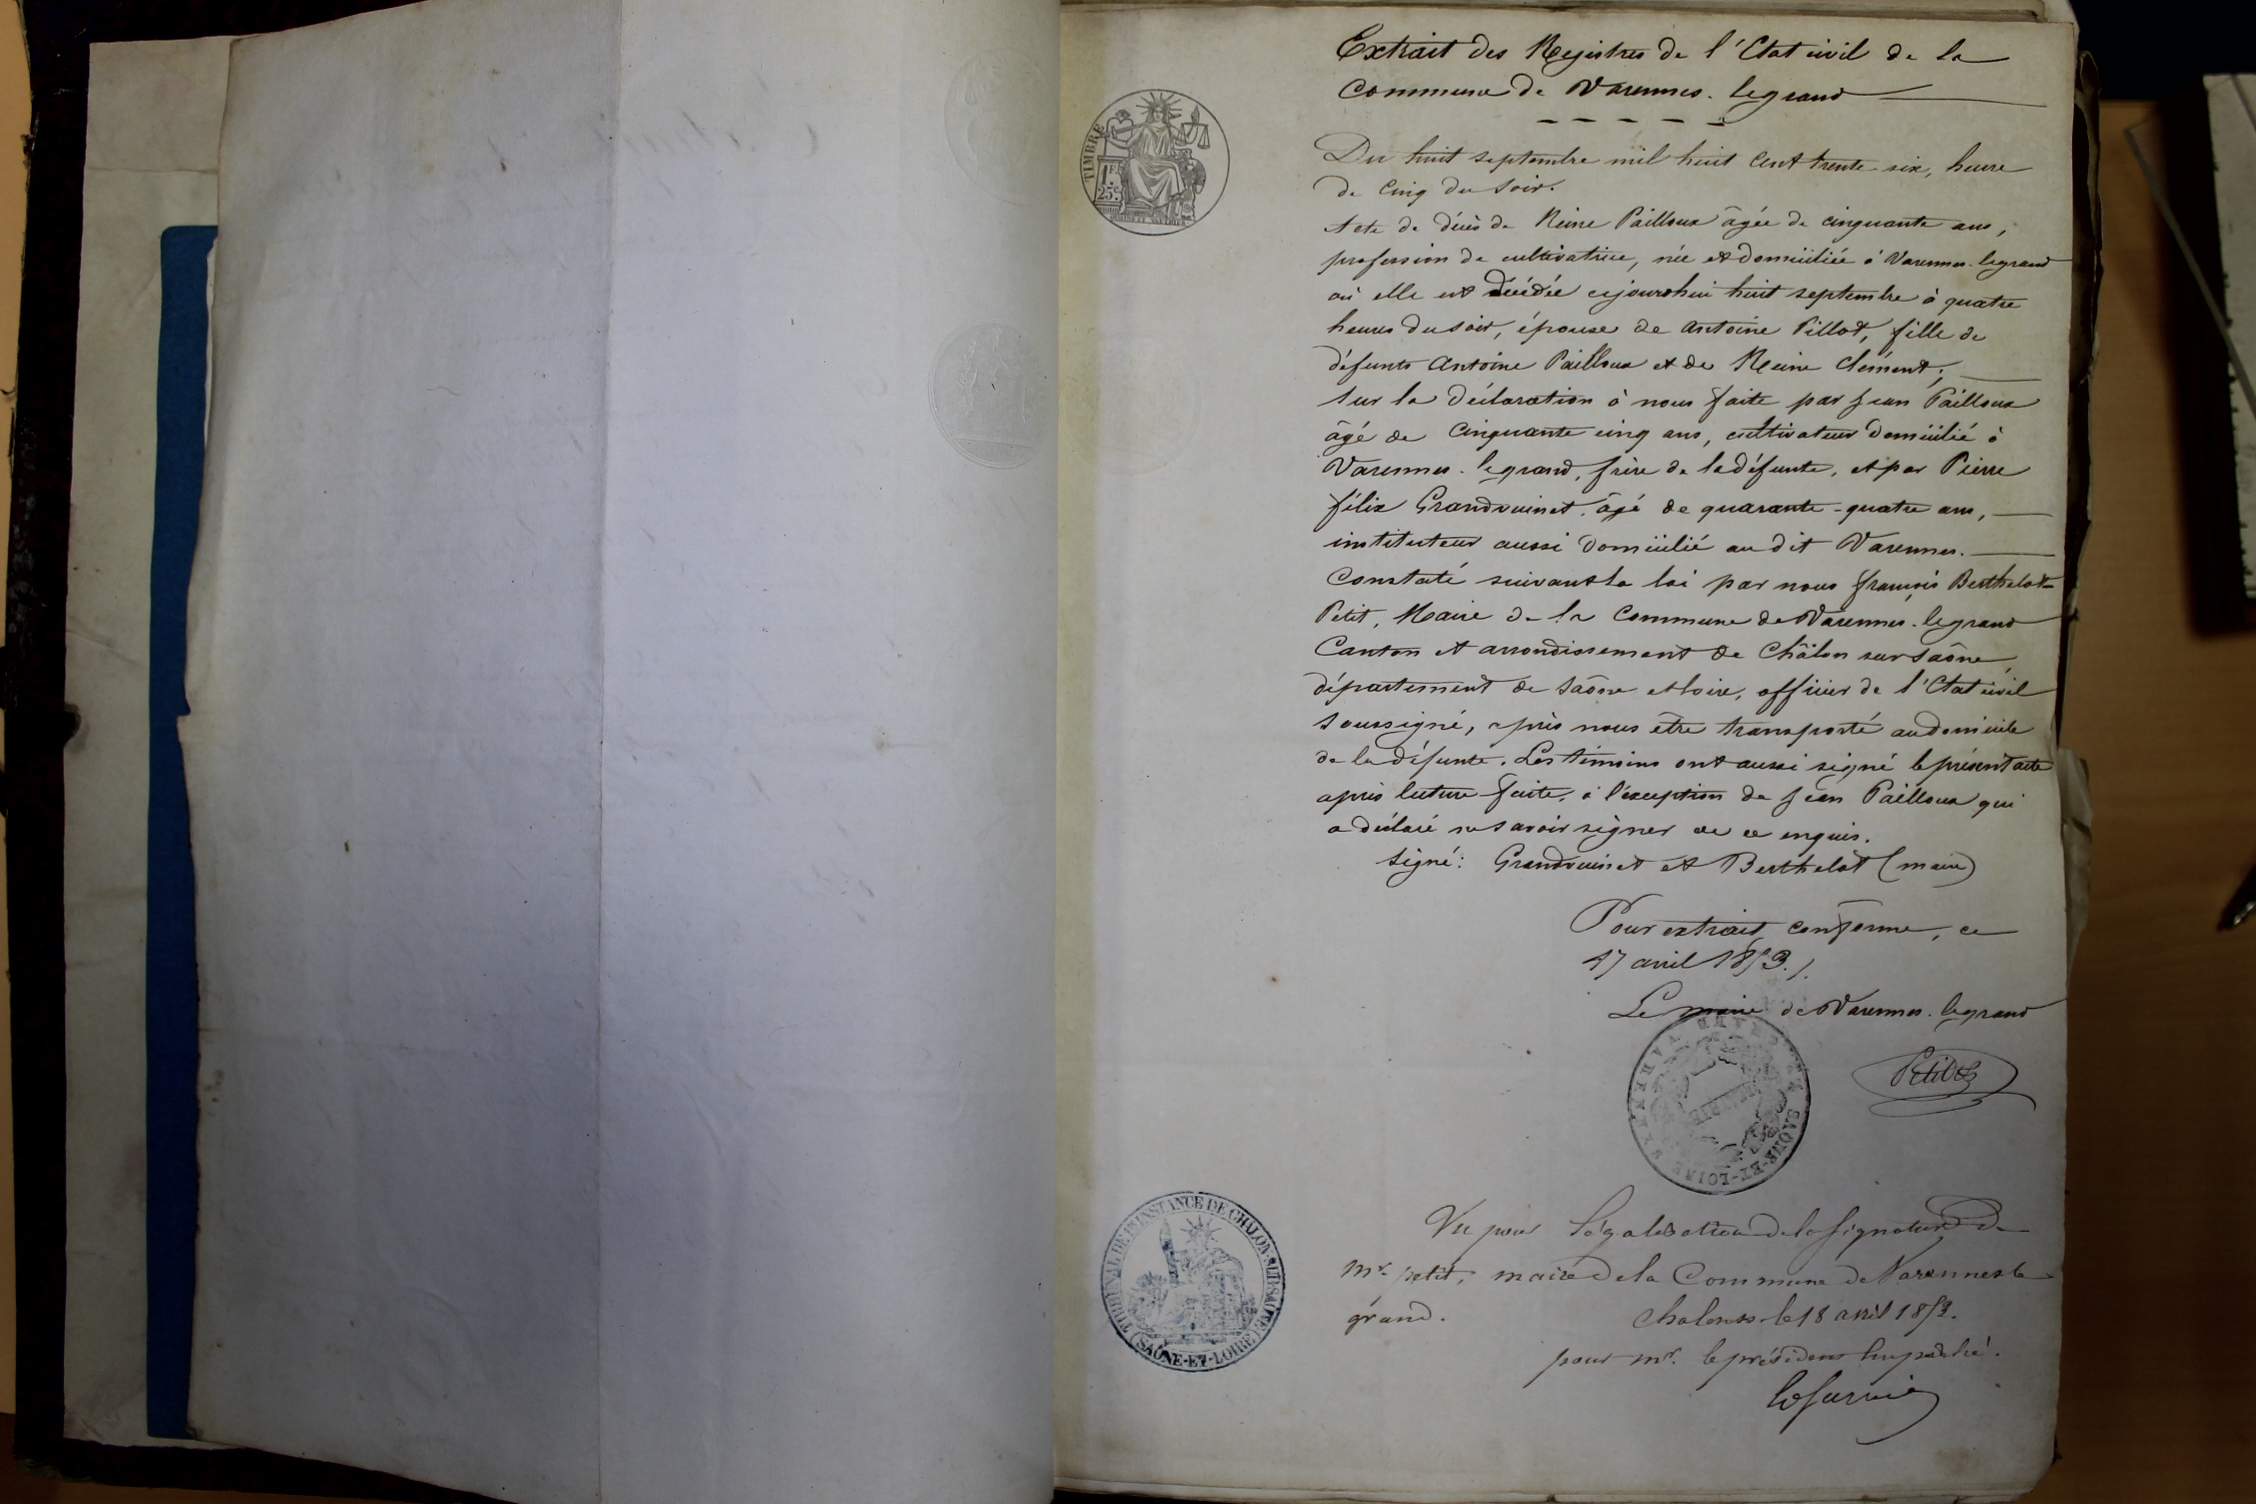 Extrait des Registres de l'Etat civil de la
Commune de Varennes-legrand
TIMBRE
1F.
25c.
Du huit septembre mil huit cent trente six, heure
de cinq du soir.
Acte de décès de Reine Pailloux âgée de cinquante ans,
profession de cultivatrice, née et domiciliée à Varennes-legrand
où elle est décédée cejourdhui huit septembre à quatre
heures du soir, épouse de Antoine Pillot, fille de
défunts Antoine Pailloux et de Reine Clément;
Sur la déclaration à nous faite par Jean Pailloux
âgé de cinquante cinq ans, cultivateur domicilié à
Varennes-legrand, frère de la défunte, et par Pierre
félix Grandvuinet, âgé de quarante-quatre ans,
instituteur aussi domicilié au dit Varennes.
Constaté suivant la loi par nous françois Berthelot-
Petit, Maire de la Commune de Varennes-legrand
Canton et arrondissement de Châlon sur Saône,
département de Saône et loire, officier de l'Etat civil
soussigné, après nous être transporté au domicile
de la défunte. Les témoins ont aussi signé le présent acte
après lecture faite, à l'exception de Jean Pailloux qui
a déclaré ne savoir signer de ce enquis.
Signé: Grandvuinet et Berthelot (maire)
Pour extrait conforme, ce
17 avril 1853./.
Le maire de Varennes-legrand
MAIRIE
SAÔNE-ET-LOIRE
Vu pour légalisation de la signature de
Mr. petit, maire de la Commune de Varennes le
grand.
Chalons le 18 avril 1853.
pour Mr. le président empêché.
TRIBUNAL DE 1RE INSTANCE DE CHALON-SUR-SAÔNE
(SAÔNE-ET-LOIRE)